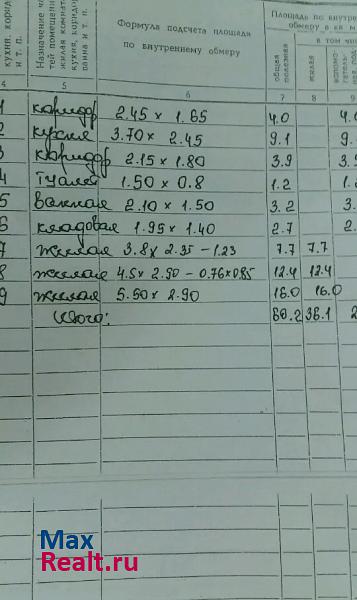 кухня, корид
и т. п.
Назначение ча
тей помещени
жилая комнат
кухня, коридо
ванна и т. п.
Формула подсчета площади
по внутреннему обмеру
Площадь по внутре
обмеру в кв. м
в том чис
общая
полезная
жилая
4 5 6 7 8 9
1 коридор 2.45 × 1.65 4.0 4.0
2 кухня 3.70 × 2.45 9.1 9.1
3 коридор 2.15 × 1.80 3.9 3.9
4 туалет 1.50 × 0.8 1.2 1.
5 ванная 2.10 × 1.50 3.2 3.
6 кладовая 1.95 × 1.40 2.7 2.
7 жилая 3.8 × 2.35 – 1.23 7.7 7.7
8 жилая 4.5 × 2.90 – 0.76×0.85 12.4 12.4
9 жилая 5.50 × 2.90 16.0 16.0
Итого: 60.2 36.1 2
Max
Realt.ru